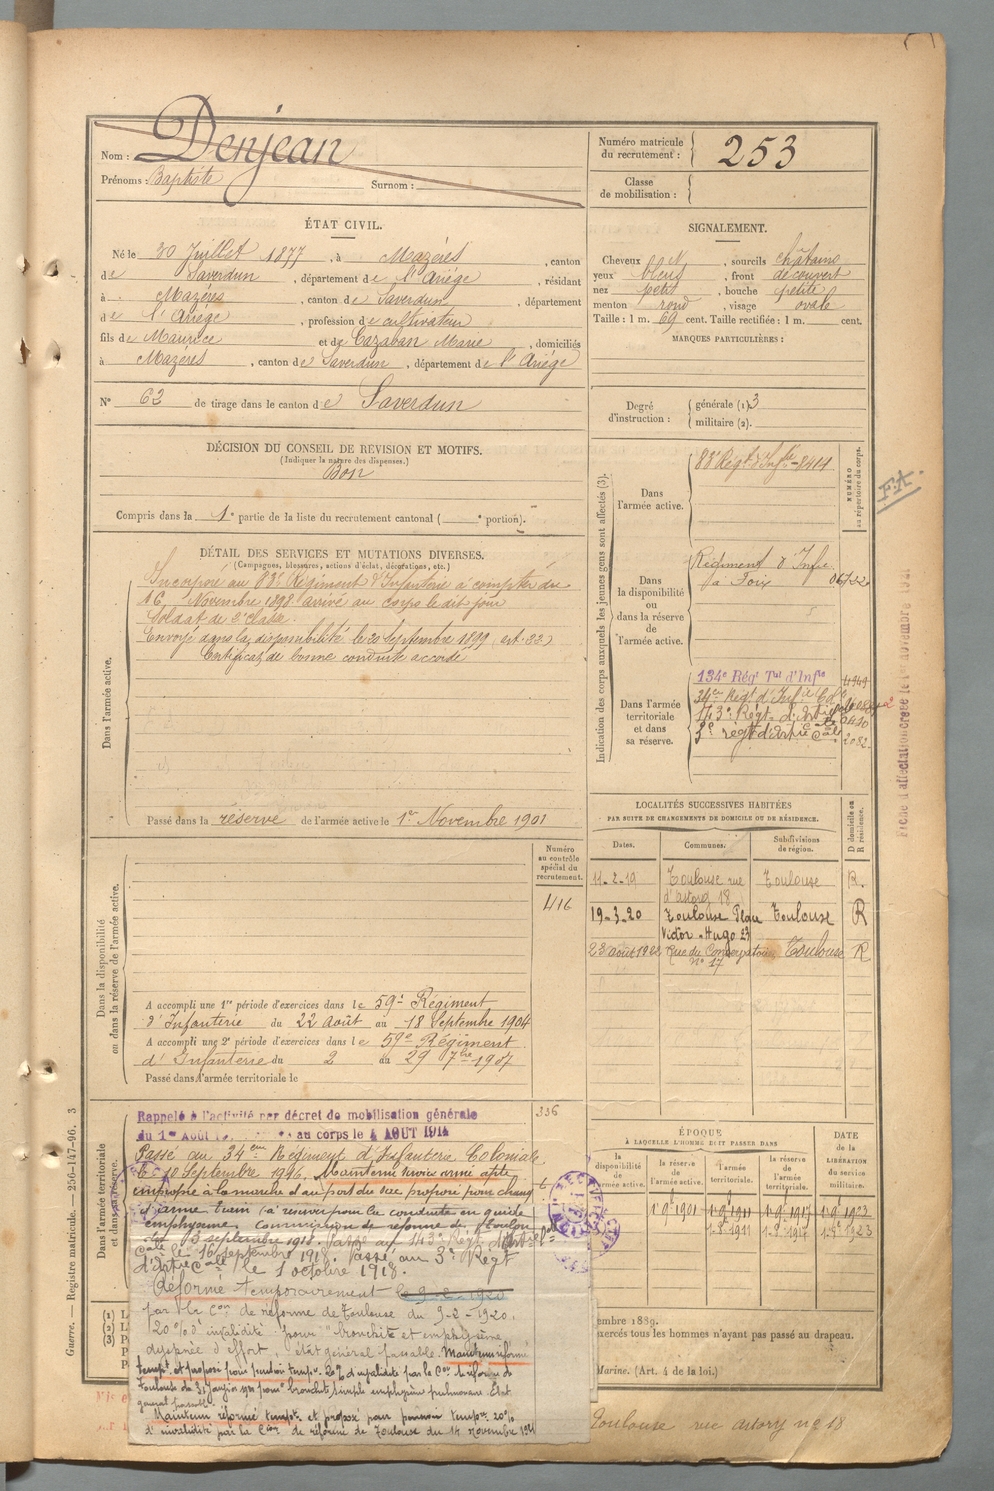 Nom : Denjean
Prénoms : Baptiste Surnom :
Numéro matricule du recrutement : 253
Classe de mobilisation :
ÉTAT CIVIL.
Né le 30 Juillet 1877, à Mazéres, canton
de Saverdun, département de l'Ariége, résidant
à Mazéres, canton de Saverdun, département
de l'Ariége, profession de cultivateur
fils de Maurice et de Cazaban Marie, domiciliés
à Mazéres, canton de Saverdun, département de l'Ariége
N° 62 de tirage dans le canton de Saverdun
SIGNALEMENT.
Cheveux , sourcils châtains
yeux bleus, front découvert
nez petit, bouche petite
menton rond, visage ovale
Taille : 1 m. 69 cent. Taille rectifiée : 1 m. cent.
MARQUES PARTICULIÈRES :
Degré d'instruction : générale (1) 3
militaire (2).
DÉCISION DU CONSEIL DE REVISION ET MOTIFS.
(Indiquer la nature des dispenses.)
Bon
Compris dans la 1e partie de la liste du recrutement cantonal ( e portion).
DÉTAIL DES SERVICES ET MUTATIONS DIVERSES.
(Campagnes, blessures, actions d'éclat, décorations, etc.)
Dans l'armée active.
Incorporé au 83e Régiment d'Infanterie à compter du
16 Novembre 1898 arrivé au corps le dit jour
Soldat de 2e classe.
Envoyé dans la disponibilité le 20 Septembre 1899 (art. 22)
Certificat de bonne conduite accordé
Passé dans la réserve de l'armée active le 1er Novembre 1901
Indication des corps auxquels les jeunes gens sont affectés (3).
NUMÉRO au répertoire du corps.
Dans l'armée active.
83e Regt d'Infie - 8414
Dans la disponibilité ou dans la réserve de l'armée active.
Régiment d'Infie
à Foix
Dans l'armée territoriale et dans sa réserve.
134e Régt Tal d'Infie
4949
34e Regt d'Infie Cole
143e Régt d'Artie
3e régt d'Artie Cale
2082
F.A.
Fiche d'affectation créée le 1er novembre
LOCALITÉS SUCCESSIVES HABITÉES
PAR SUITE DE CHANGEMENTS DE DOMICILE OU DE RÉSIDENCE.
Dates. Communes. Subdivisions de région. D domicile ou R résidence.
11-2-19 Toulouse rue d'astorg 18 Toulouse R.
19-3-20 Toulouse Place Victor-Hugo 23 Toulouse R
23 août 1922 Rue du Conservatoire N° 17 Toulouse R
Dans la disponibilité ou dans la réserve de l'armée active.
Numéro au contrôle spécial du recrutement.
1416
A accompli une 1re période d'exercices dans le 59e Régiment
d'Infanterie du 22 Août au 18 Septembre 1904
A accompli une 2e période d'exercices dans le 59e Régiment
d'Infanterie du 2 au 29 7bre 1907
Passé dans l'armée territoriale le
Dans l'armée territoriale et dans sa réserve.
336
Rappelé à l'activité par décret de mobilisation générale
du 1er Août au corps le 4 AOUT 1914
Passé au 34eme Régiment d'Infanterie Coloniale
le 10 Septembre 1916. Maintenu service armé apte
impropre à la marche et au port du sac proposé pour changt
d'arme train (à réserver pour la conduite en guide
emphyseme. Commission de réforme de Toulon
du 13 septembre 1918. Passé au 143e Régt d'Artie
Cale le 16 septembre 1918. Passé au 3e Régt
d'Artie Cale le 1 octobre 1918.
Réformé temporairement le 9-2-1920
par la Con de réforme de Toulouse du 9-2-1920.
20 % d'invalidité pour bronchite et emphysème
dyspnée d'effort, état général passable. Maintenu réformé
tempt. et proposé pour pension tempre. 20% d'invalidité par la Con de réforme de
Toulouse du 31 janvier pour bronchite emphysème pulmonaire. État
général passable.
Maintenu réformé tempt. et proposé pour pension tempre. 20%
d'invalidité par la Con de réforme de Toulouse du 14 novembre
ÉPOQUE
À LAQUELLE L'HOMME DOIT PASSER DANS
la disponibilité de l'armée active. la réserve de l'armée active. l'armée territoriale. la réserve de l'armée territoriale.
DATE DE LA LIBÉRATION du service militaire.
1.9bre 1901 1.9bre 1911 1.9bre 1917 1.9bre 1923
embre 1889.
exercés tous les hommes n'ayant pas passé au drapeau.
Marine. (Art. 4 de la loi.)
Toulouse rue astorg n° 18
Guerre. — Registre matricule. — 256-147-96. 3
(1)
(2)
(3)